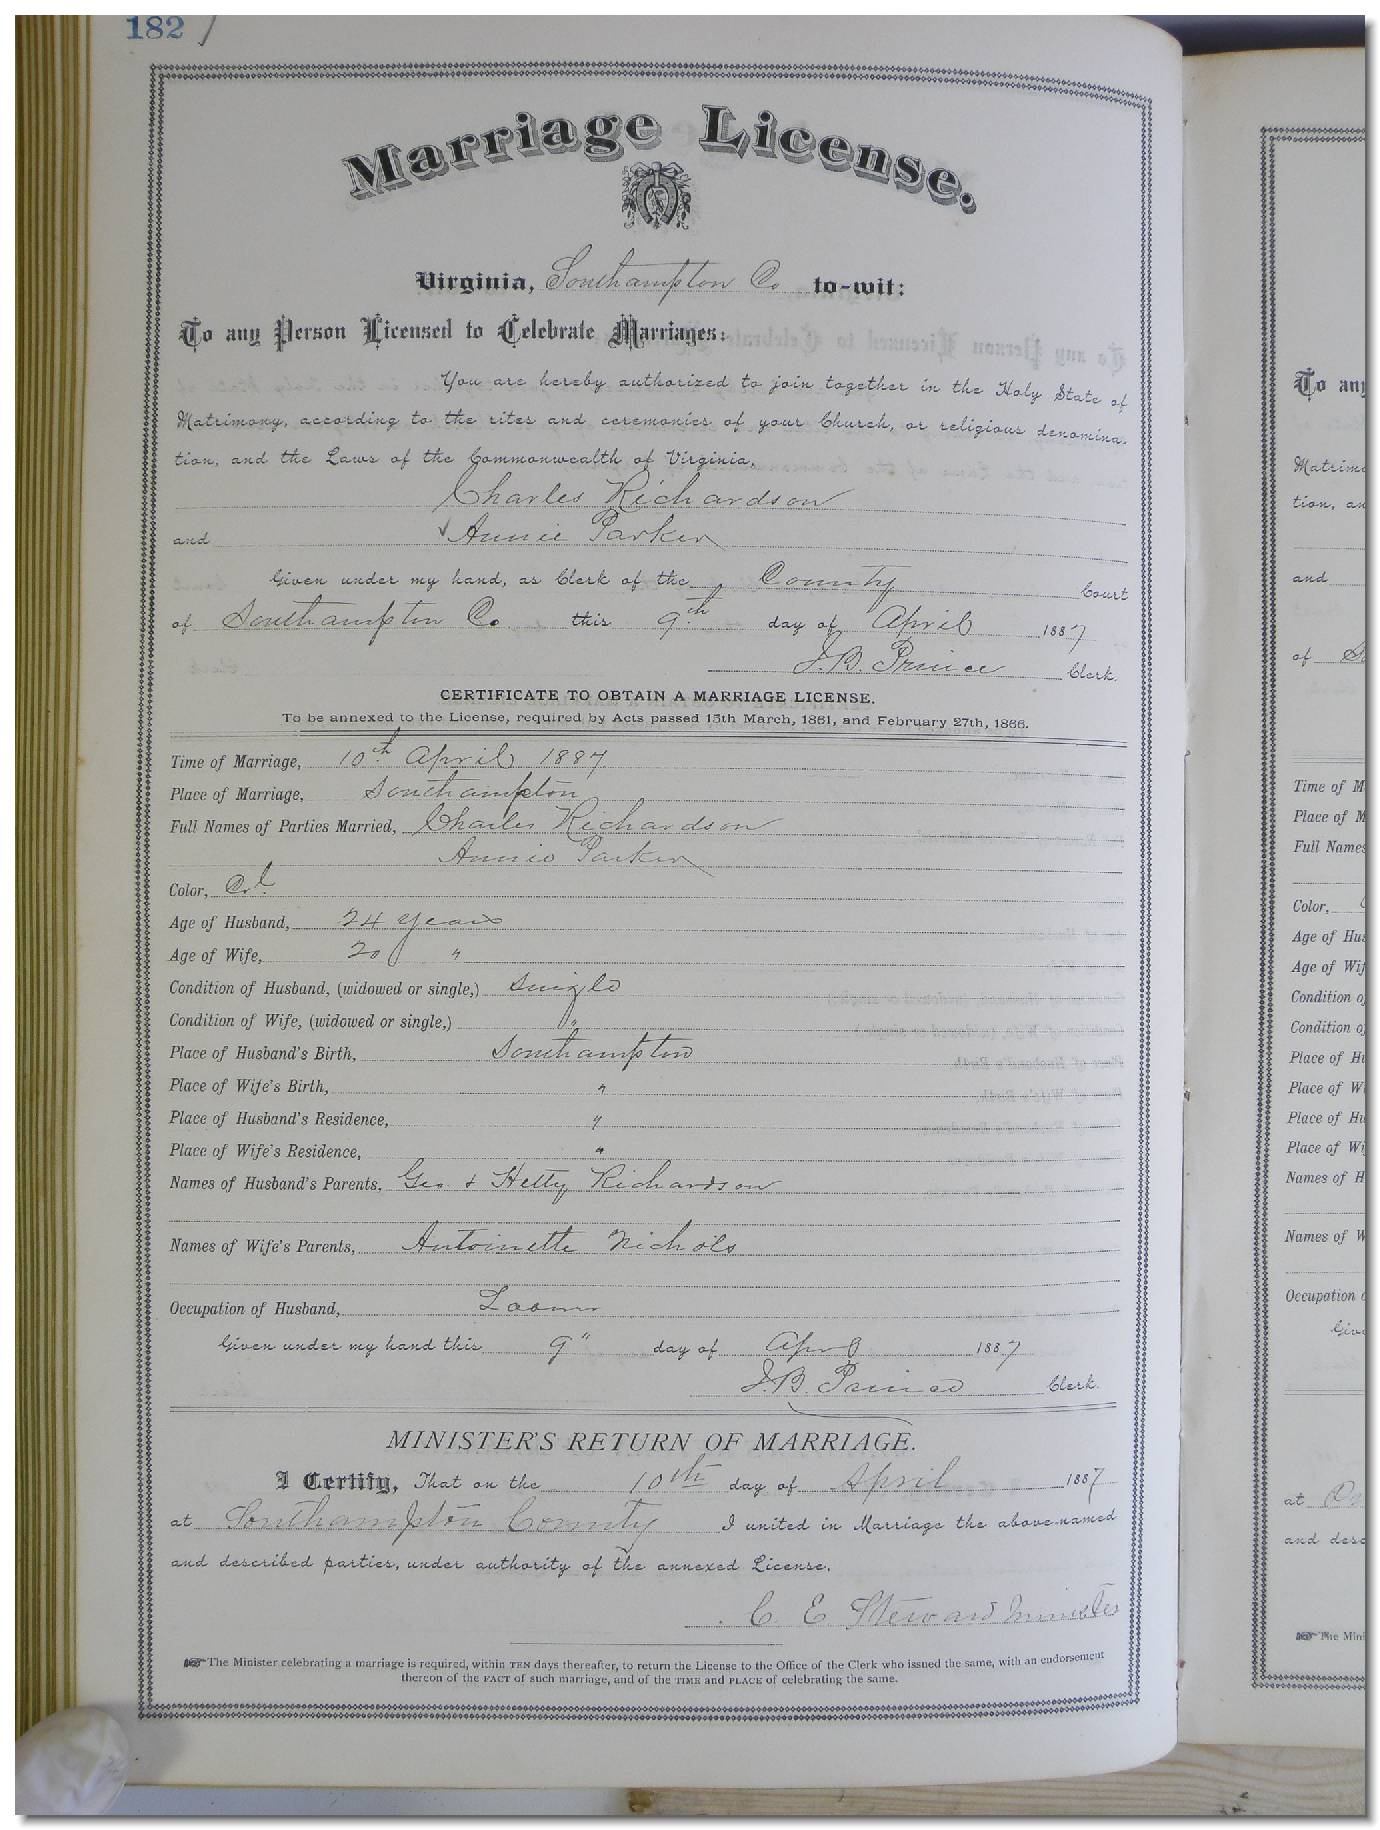 182
Marriage License.
Virginia, Southampton Co to-wit:
To any Person Licensed to Celebrate Marriages:
You are hereby authorized to join together in the Holy State of
Matrimony, according to the rites and ceremonies of your Church, or religious denomina-
tion, and the Laws of the Commonwealth of Virginia,
Charles Richardson
and Annie Parker
Given under my hand, as Clerk of the County Court
of Southampton Co this 9th day of April 1887
J. B. Prince Clerk.
CERTIFICATE TO OBTAIN A MARRIAGE LICENSE.
To be annexed to the License, required by Acts passed 15th March, 1861, and February 27th, 1866.
Time of Marriage, 10th April 1887
Place of Marriage, Southampton
Full Names of Parties Married, Charles Richardson
Annie Parker
Color, Col
Age of Husband, 24 years
Age of Wife, 20 "
Condition of Husband, (widowed or single,) Single
Condition of Wife, (widowed or single,) "
Place of Husband's Birth, Southampton
Place of Wife's Birth, "
Place of Husband's Residence, "
Place of Wife's Residence, "
Names of Husband's Parents, Geo & Hetty Richardson
Names of Wife's Parents, Antoinette Nichols
Occupation of Husband,
Given under my hand this 9" day of Apr 1887
J. B. Prince Clerk.
MINISTER'S RETURN OF MARRIAGE.
I Certify, That on the 10th day of April 1887
at Southampton County I united in Marriage the above-named
and described parties, under authority of the annexed License.
C. E. Steward Minister
The Minister celebrating a marriage is required, within TEN days thereafter, to return the License to the Office of the Clerk who issued the same, with an endorsement
thereon of the FACT of such marriage, and of the TIME and PLACE of celebrating the same.
To any
Matrimo
tion, an
and
of
Time of M
Place of M
Full Names
Color,
Age of Hus
Age of Wif
Condition o
Condition o
Place of Hu
Place of Wi
Place of Hu
Place of Wi
Names of H
Names of W
Occupation o
Give
at
and desc
The Mini